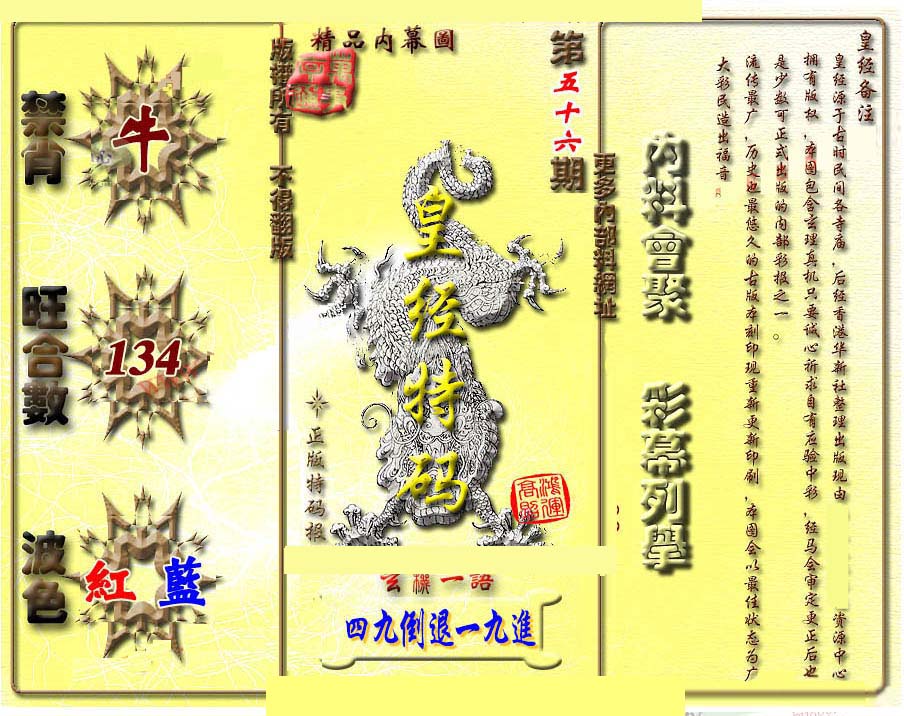 皇经备注
皇经源于古时民间各寺庙，后经香港华新社整理出版现由 资源中心
拥有版权，本图包含玄理真机只要诚心祈求自有应验中彩，经马会审定更正后也
是少数可正式出版的内部彩报之一。
流传最广，历史也最悠久的古版本刻印现重新更新印刷，本图会以最佳状态为广
大彩民造出福音
內料會聚 彩幕列舉
更多內部料網址
第五十六期
精品内幕圖
皇经特码
正版特码报
鴻運
高照
玄機一語
四九倒退一九進
版權所有 不得翻版
禁肖
牛
旺合數
134
波色
紅 藍